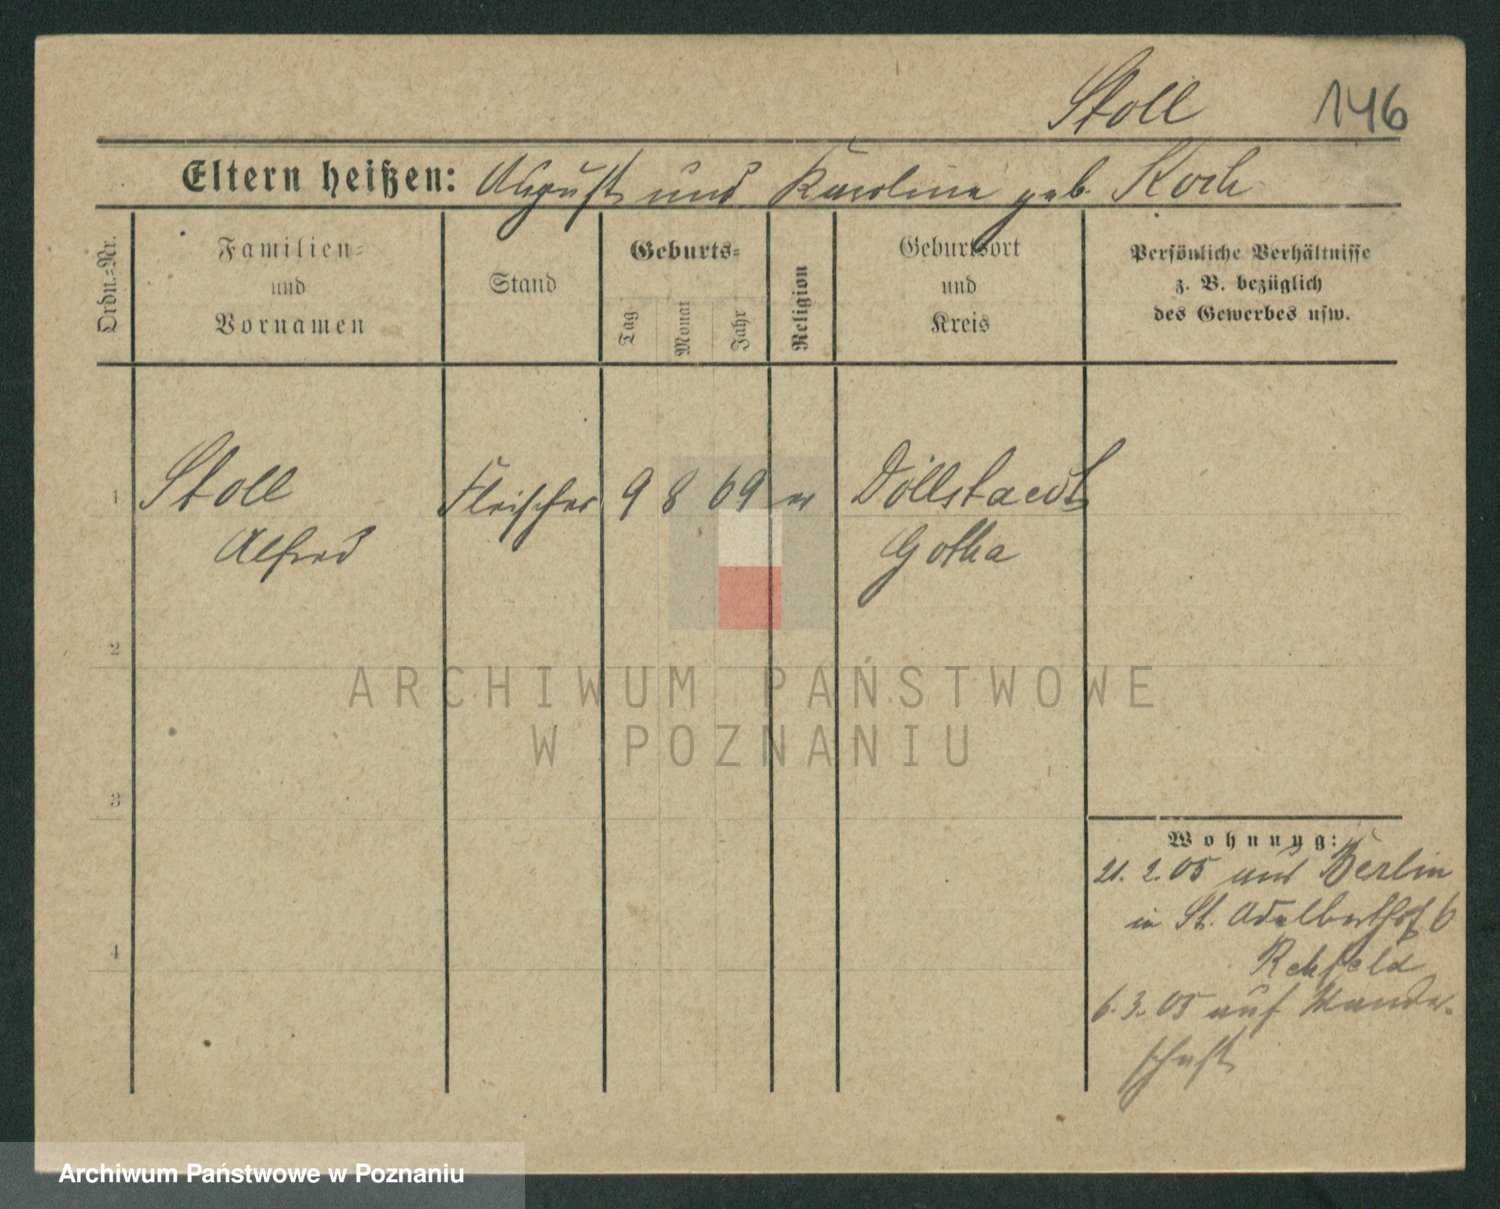 Stoll 146
Eltern heißen: August und Karoline geb. Koch
Ordn.=Nr.
Familien=
und
Vornamen
Stand
Geburts=
Tag
Monat
Jahr
Religion
Geburtsort
und
Kreis
Persönliche Verhältnisse
z. B. bezüglich
des Gewerbes usw.
1 Stoll Fleischer 9 8 69 ev Döllstaedt
Alfred Gotha
2
ARCHIWUM PAŃSTWOWE
W POZNANIU
3
Wohnung:
21. 2. 05 aus Berlin
in St. Adalberthof 6
Rehfeld
4
6. 3. 05 auf Wander-
schaft
Archiwum Państwowe w Poznaniu